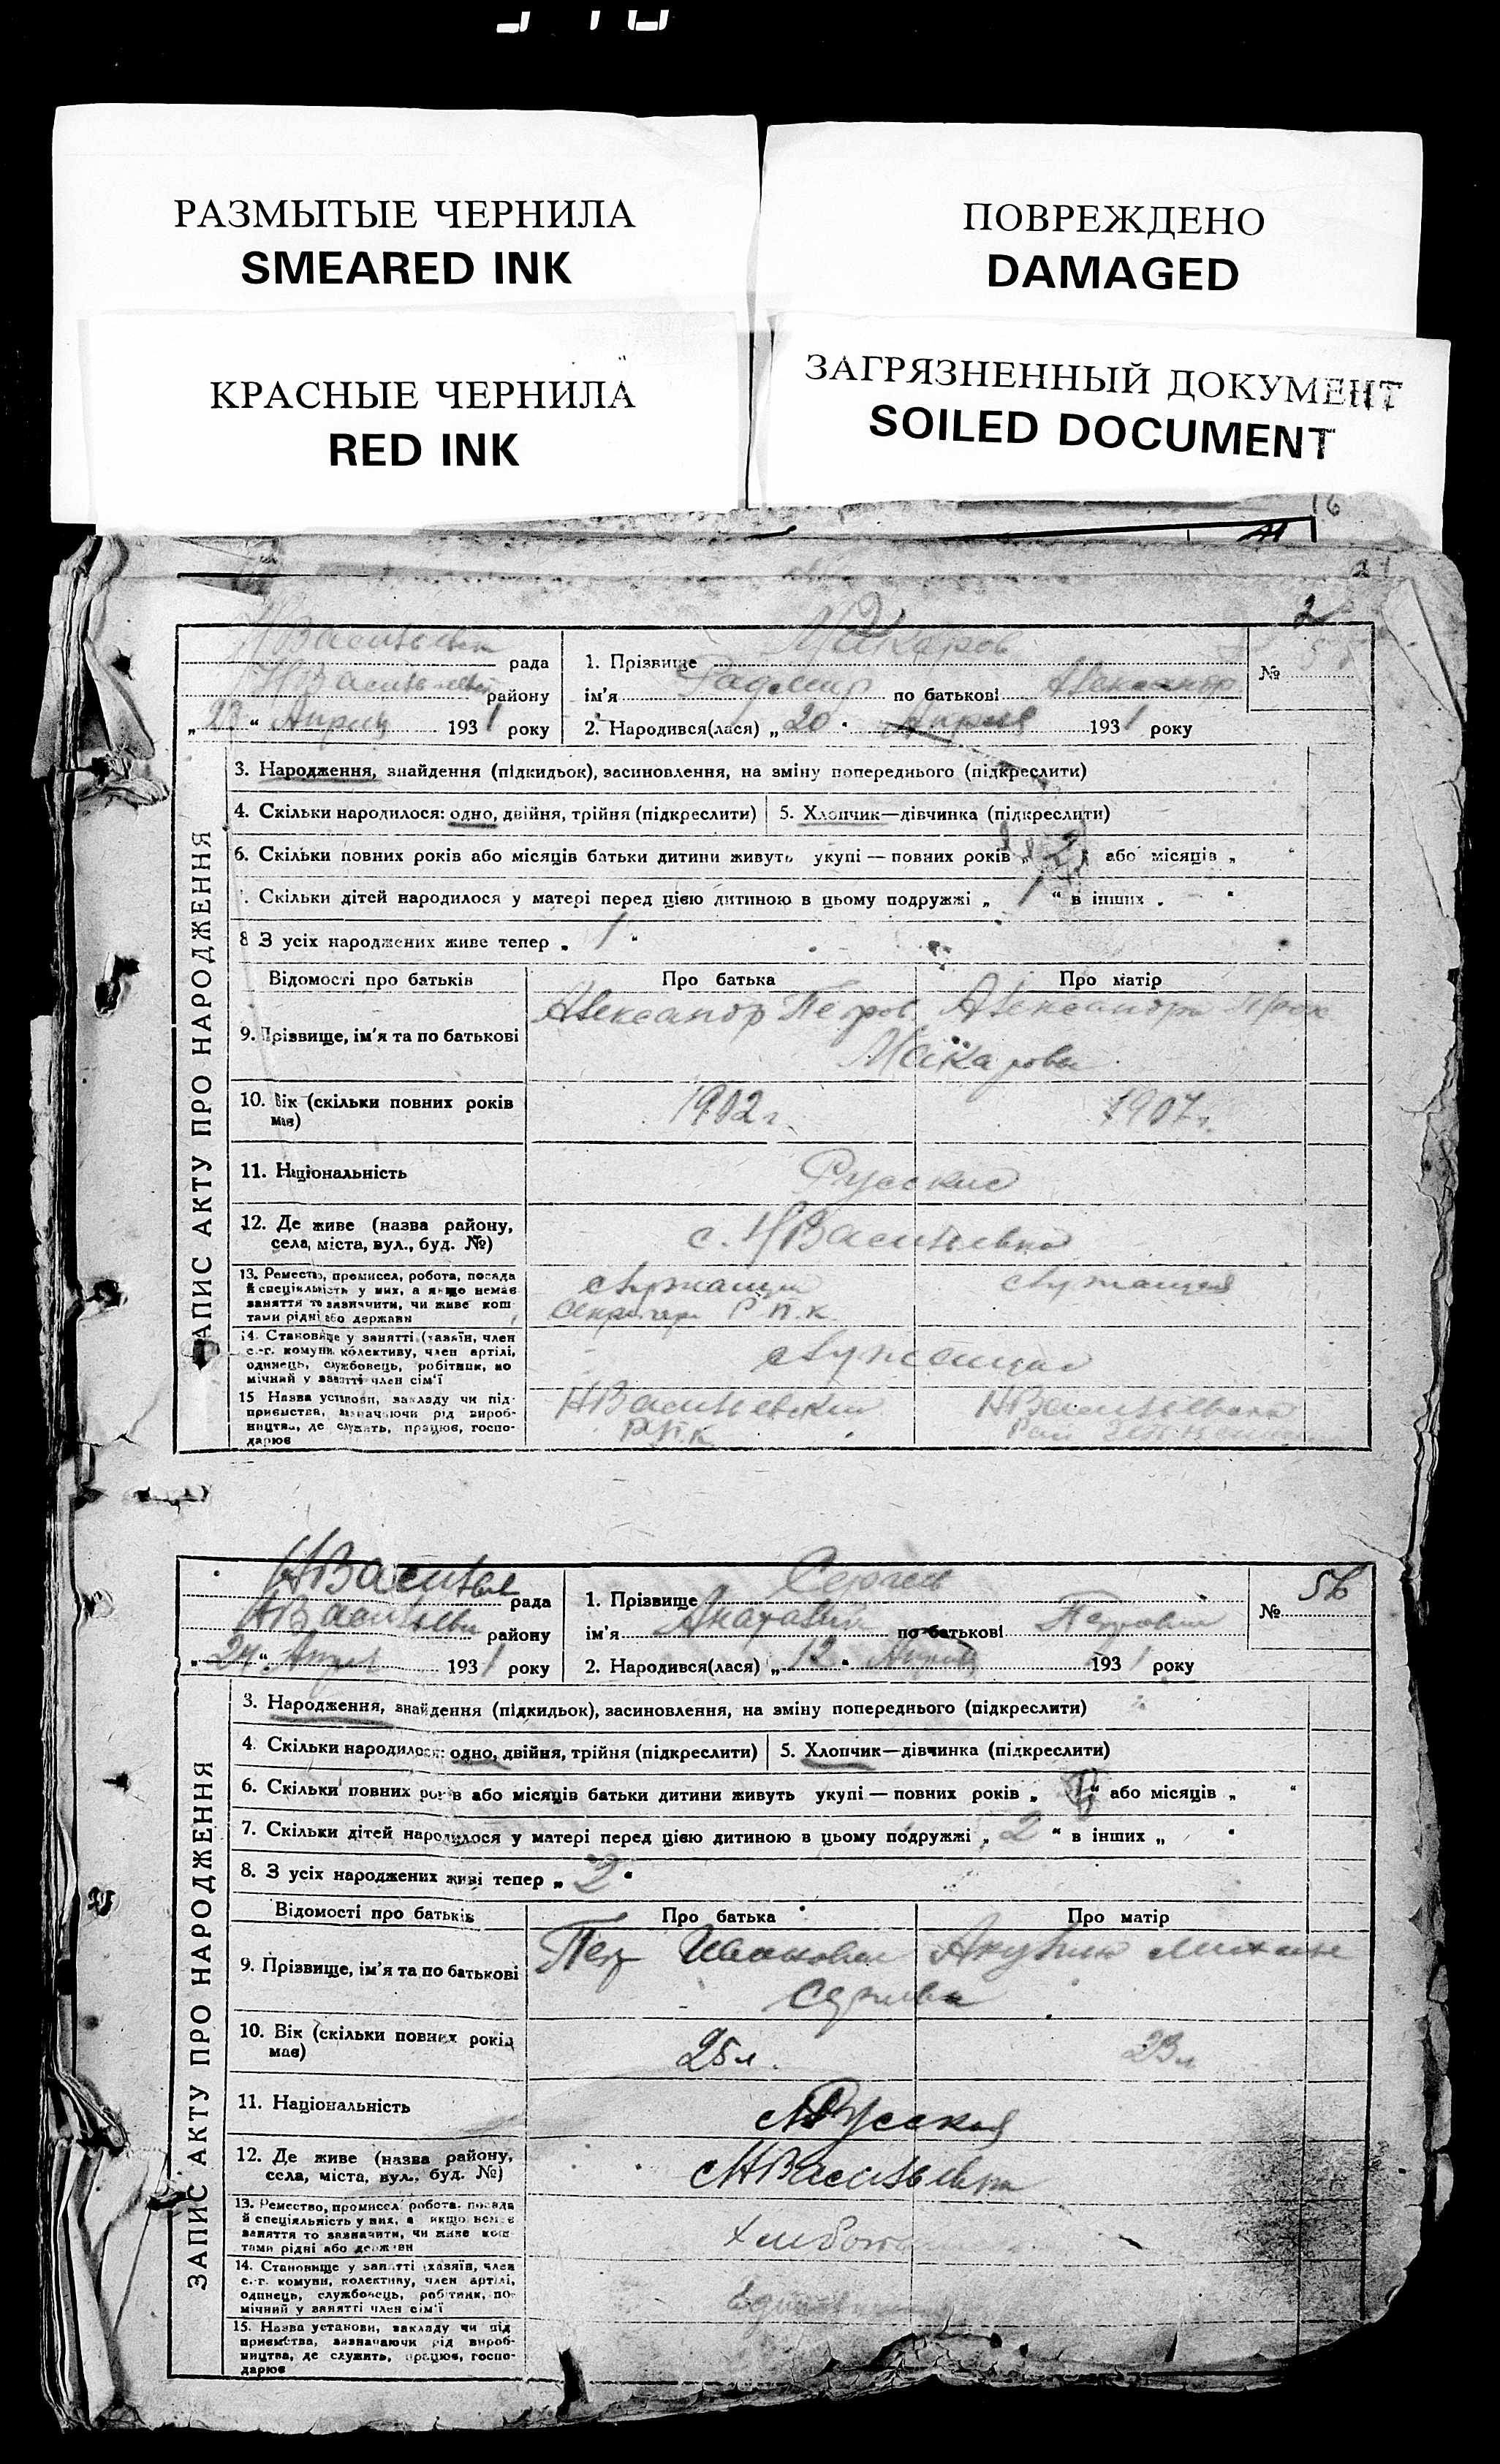 РАЗМЫТЫЕ ЧЕРНИЛА
SMEARED INK
ПОВРЕЖДЕНО
DAMAGED
КРАСНЫЕ ЧЕРНИЛА
RED INK
ЗАГРЯЗНЕННЫЙ ДОКУМЕНТ
SOILED DOCUMENT
16
21
2
НВасильевк рада
НВасильев району
„23“ Априль 1931 року
1. Прізвище Макаров
ім'я Радомир по батькові Александр
2. Народився(лася) „20“ Апреля 1931 року
№ 55
ЗАПИС АКТУ ПРО НАРОДЖЕННЯ
3. Народження, знайдення (підкидьок), засиновлення, на зміну попереднього (підкреслити)
4. Скільки народилося: одно, двійня, трійня (підкреслити)
5. Хлопчик—дівчинка (підкреслити)
6. Скільки повних років або місяців батьки дитини живуть укупі — повних років „2“ або місяців „ “
7. Скільки дітей народилося у матері перед цією дитиною в цьому подружжі „1“ в інших „ “
8 З усіх народжених живе тепер „1“
Відомості про батьків
Про батька
Про матір
9. Прізвище, ім'я та по батькові
Александр Петров
Александра
Макаровы
10. Вік (скільки повних років має)
1902 г.
1907 г.
11. Національність
Русские
12. Де живе (назва району, села, міста, вул., буд. №)
с. НВасильевка
13. Ремество, промисел, робота, посада
й спеціяльність у них, а якщо немає
заняття то зазначити, чи живе кош-
тами рідні або держави
служащий
Секретарь Р.П.К.
служащая
14. Становище у занятті (хазяїн, член
с.-г. комуни колективу, член артілі,
одинець, службовець, робітник, по
мічний у занятті член сім'ї
служащие
15 Назва установи, закладу чи під-
приємства, зазначаючи рід вироб-
ництва, де служить, працює, госпо-
дарює
НВасильевский
Р.П.К.
НВасильевская
НВасильев рада
НВасильев району
„24“ Апреля 1931 року
1. Прізвище Сергеев
ім'я Анатолий по батькові Петрович
2. Народився(лася) „12“ Апреля 1931 року
№ 56
ЗАПИС АКТУ ПРО НАРОДЖЕННЯ
3. Народження, знайдення (підкидьок), засиновлення, на зміну попереднього (підкреслити)
4. Скільки народилося: одно, двійня, трійня (підкреслити)
5. Хлопчик—дівчинка (підкреслити)
6. Скільки повних років або місяців батьки дитини живуть укупі — повних років „ “ або місяців „ “
7. Скільки дітей народилося у матері перед цією дитиною в цьому подружжі „2“ в інших „ “
8. З усіх народжених живі тепер „2“
Відомості про батьків
Про батька
Про матір
9. Прізвище, ім'я та по батькові
Петр Иванович
Акулина Михайл
10. Вік (скільки повних років має)
25 л.
23 л.
11. Національність
Русския
12. Де живе (назва району, села, міста, вул., буд. №)
с НВасильевка
13. Ремество, промисел робота, посада
й спеціяльність у них, а якщо немає
заняття то зазначити, чи живе кош-
тами рідні або держави
14. Становище у занятті (хазяїн, член
с.-г. комуни, колективу, член артілі,
одинець, службовець, робітник, по-
мічний у занятті член сім'ї
15. Назва установи, закладу чи під
приємства, зазначаючи рід вироб-
ництва, де служить, працює, госпо-
дарює